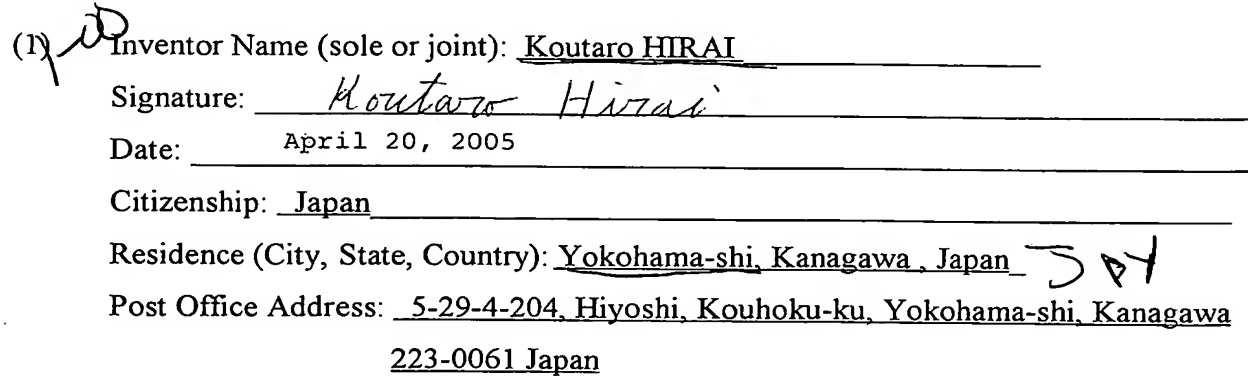 (1) Inventor Name (sole or joint): Koutaro HIRAI
Signature: Koutaro Hirai
Date: April 20, 2005
Citizenship: Japan
Residence (City, State, Country): Yokohama-shi, Kanagawa , Japan
Post Office Address: 5-29-4-204, Hiyoshi, Kouhoku-ku, Yokohama-shi, Kanagawa
223-0061 Japan